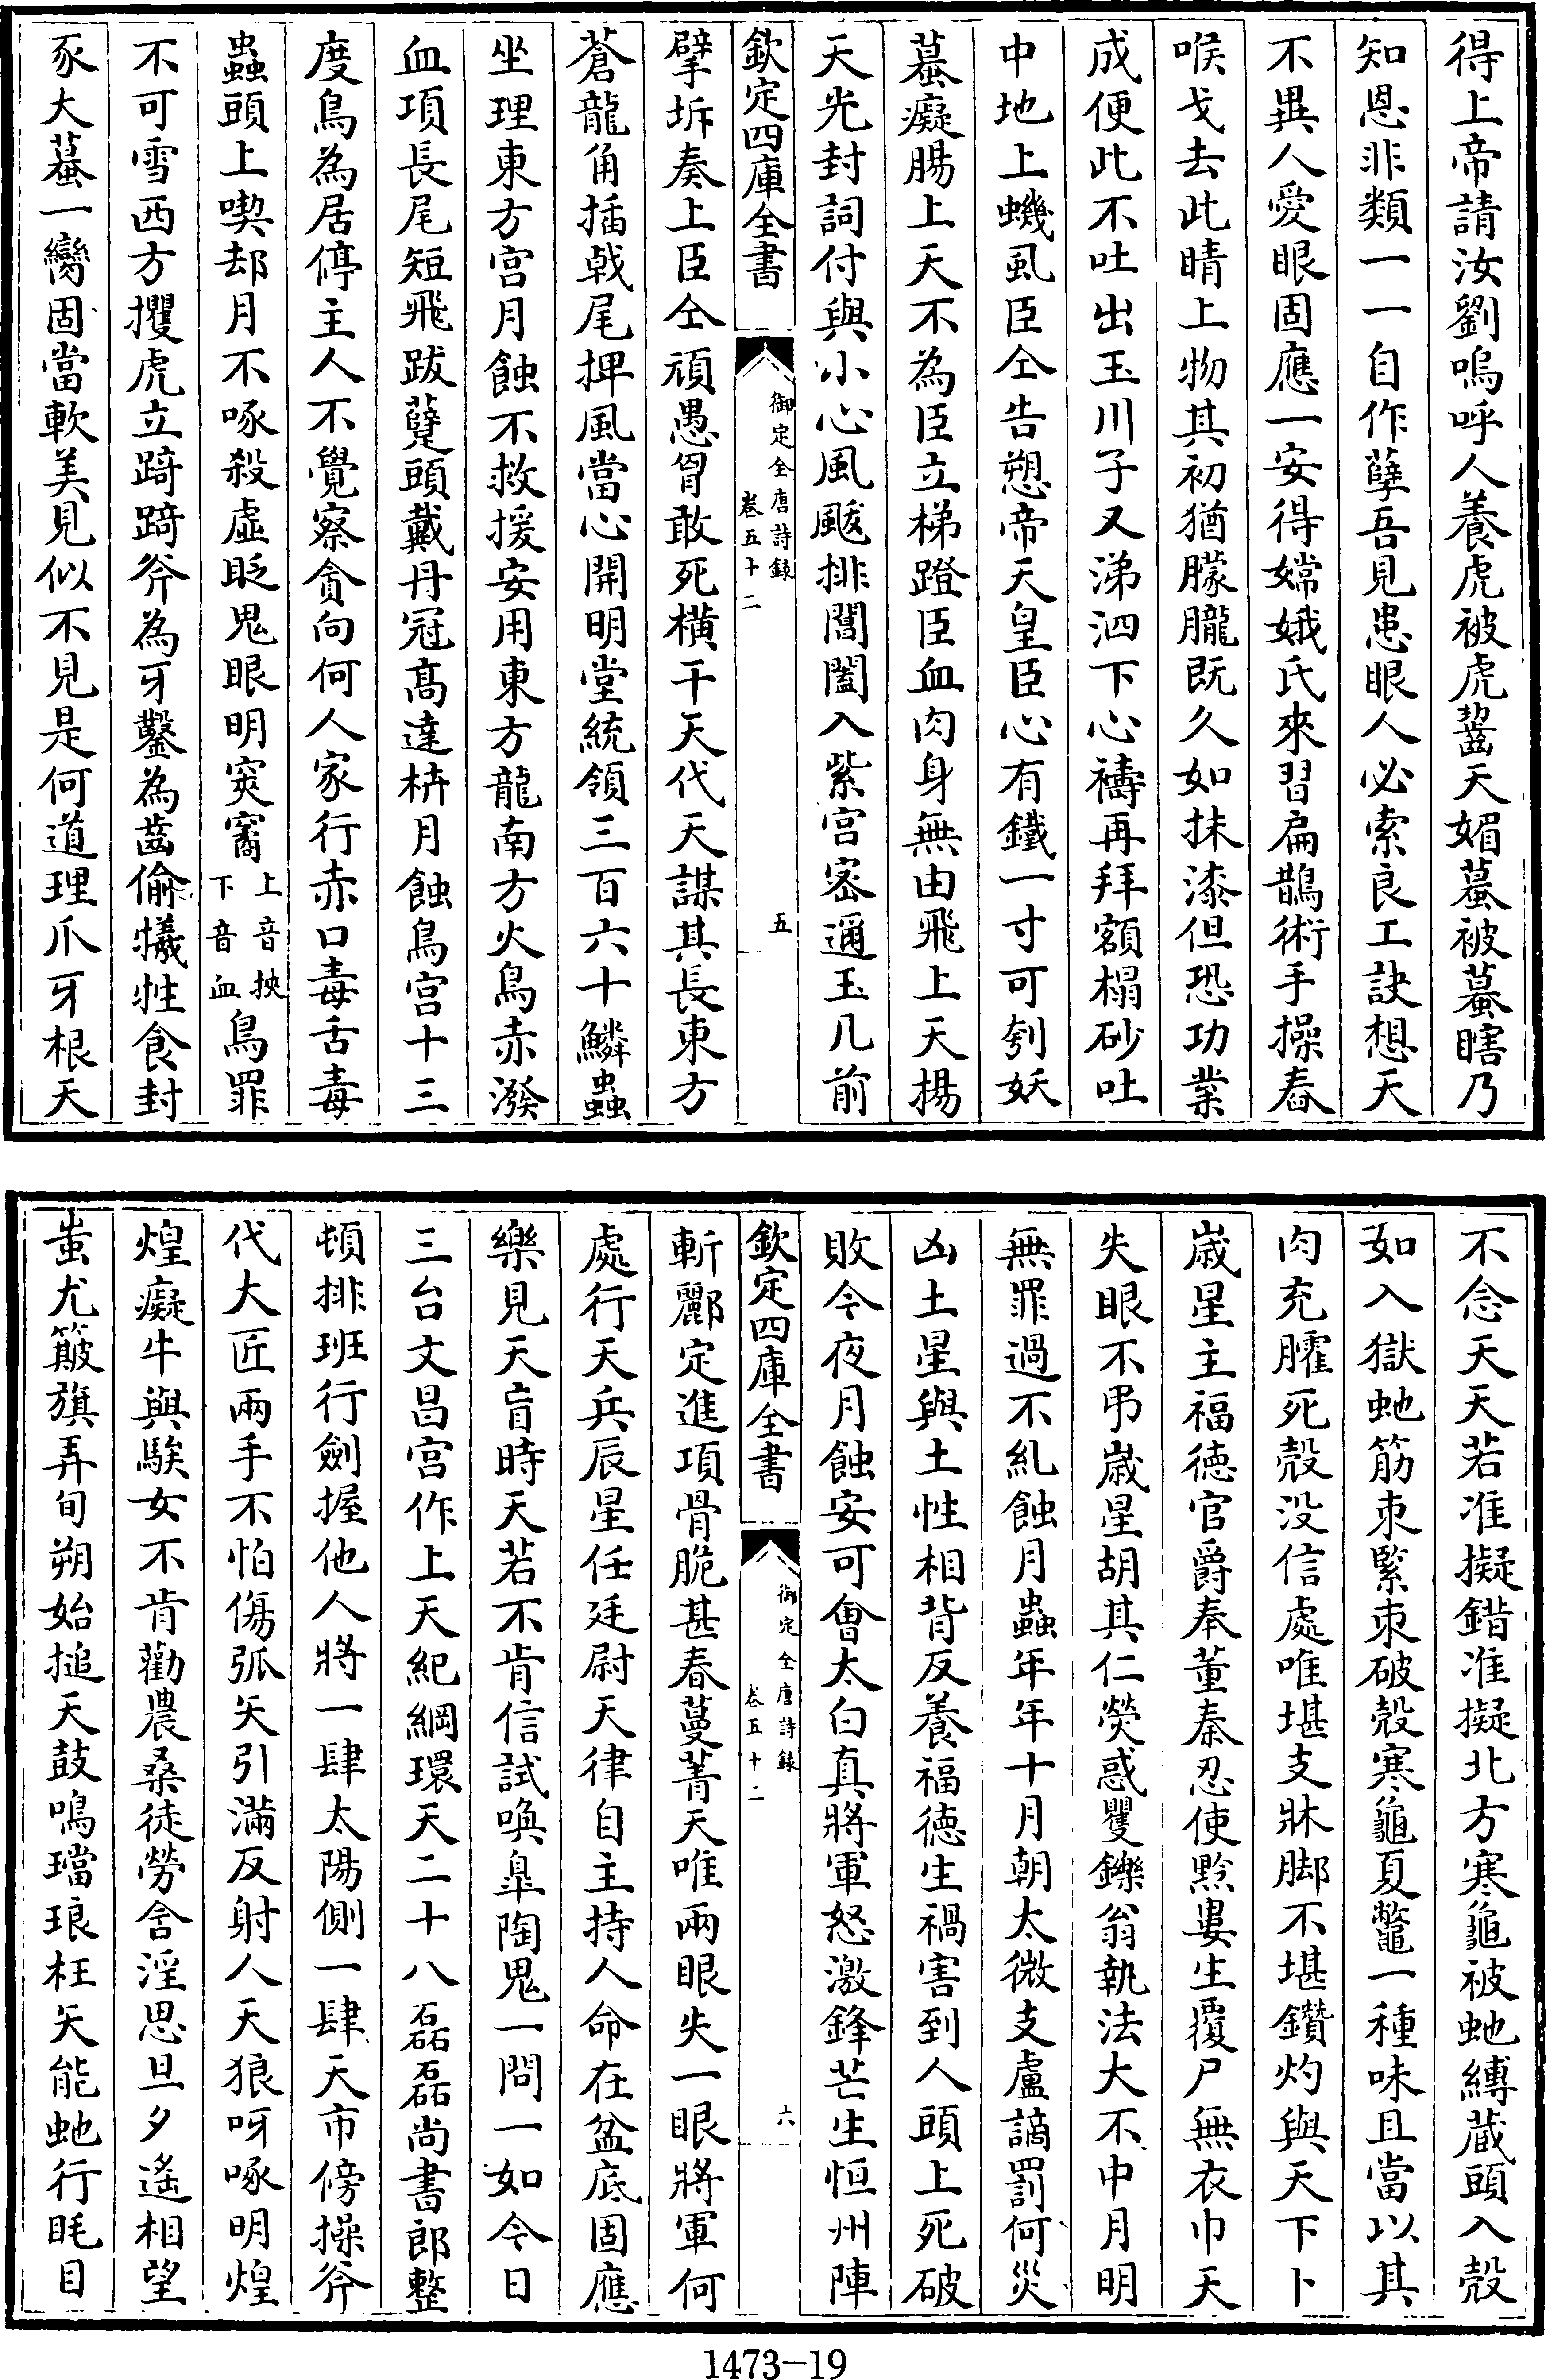 得上帝請汝劉嗚呼人養虎被虎齧天媚蟇被蟇瞎乃
知恩非類一一自作孽吾見患眼人必索良工訣想天
不異人愛眼固應一安得嫦娥氏來習扁鵲術手操舂
喉戈去此睛上物其初猶朦朧既久如抹漆但恐功業
成便此不吐出玉川子又涕泗下心禱再拜額榻砂吐
中地上蟣虱臣仝告愬帝天皇臣心有鐵一寸可刳妖
蟇癡腸上天不為臣立梯蹬臣血肉身無由飛上天揚
天光封詞付與小心風颰排閶闔入紫宫宻邇玉几前
欽定四庫全書
御定全唐詩録
卷五十二
五
擘坼奏上臣仝頑愚胷敢死横干天代天謀其長東方
蒼龍角插戟尾捭風當心開明堂統領三百六十鱗蟲
坐理東方宫月蝕不救援安用東方龍南方火鳥赤潑
血項長尾短飛跋躠頭戴丹冠髙達枿月蝕鳥宫十三
度鳥為居停主人不覺察貪向何人家行赤口毒舌毒
蟲頭上喫却月不啄殺虚眨鬼眼明𥥛窬上音抰下音血鳥罪
不可雪西方攫虎立踦踦斧為牙鑿為齒偷犧牲食封
豕大蟇一臠固當軟美見似不見是何道理爪牙根天
不念天天若准擬錯准擬北方寒龜被虵縛蔵頭入殻
如入獄虵筋束緊束破殻寒龜夏鼈一種味且當以其
肉充臛死殻没信處唯堪支牀脚不堪鑽灼與天下卜
嵗星主福徳官爵奉董秦忍使黔婁生覆尸無衣巾天
失眼不弔嵗星胡其仁熒惑矍鑠翁執法大不中月明
無罪過不糺蝕月蟲年年十月朝太微支盧謫罰何災
凶土星與土性相背反養福徳生禍害到人頭上死破
敗今夜月蝕安可會太白真將軍怒激鋒芒生恒州陣
欽定四庫全書
御定全唐詩録
卷五十二
六
斬酈定進項骨脆甚春蔓菁天唯兩眼失一眼將軍何
處行天兵辰星任廷尉天律自主持人命在盆底固應
樂見天盲時天若不肯信試喚臯陶鬼一問一如今日
三台文昌宫作上天紀綱環天二十八磊磊尚書郎整
頓排班行劍握他人將一肆太陽側一肆天市傍操斧
代大匠兩手不怕傷弧矢引滿反射人天狼呀啄明煌
煌癡牛與騃女不肯勸農桑徒勞含淫思旦夕遙相望
蚩尤簸旗弄旬朔始搥天鼓鳴璫琅枉矢能虵行眊目
1473-19